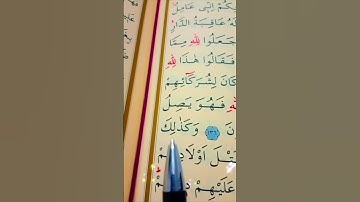 كُمْ اِنّٖى عَامِلٌ
لَهُ عَاقِبَةُ الدَّارِ
جَعَلُوا لِلّٰهِ مِمَّا
فَقَالُوا هٰذَا لِلّٰهِ
كَانَ لِشُرَكَٓائِهِمْ
لِلّٰهِ فَهُوَ يَصِلُ
نَ ﴿١٣٦﴾ وَكَذٰلِكَ
قَتْلَ اَوْلَادِهِمْ
عَلَيْهِمْ دٖينَهُمْ